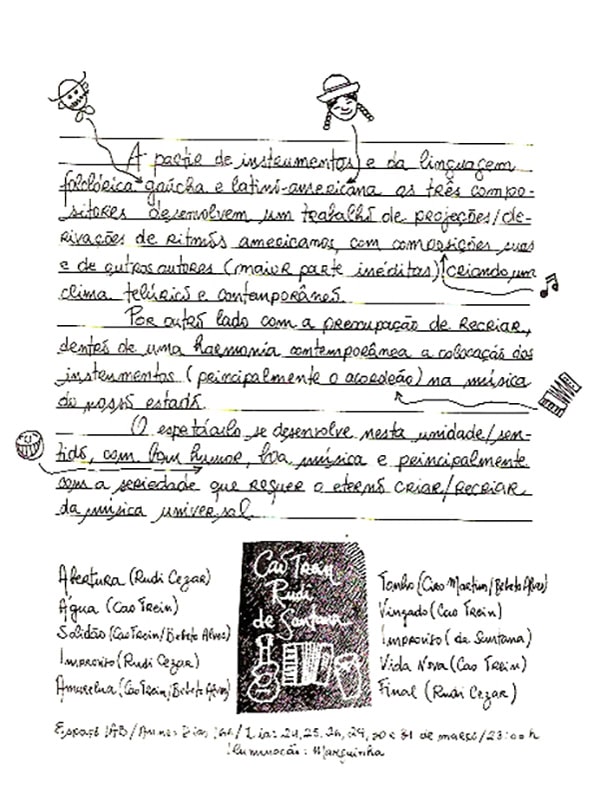 A partir de instrumentos e da linguagem
folclórica gaúcha e latino-americana os três compo-
sitores desenvolvem um trabalho de projeções/de-
rivações de ritmos americanos, com composições suas
e de outros autores (maior parte inéditas) criando um
clima telúrico e contemporâneo.
Por outro lado com a preocupação de recriar,
dentro de uma harmonia contemporânea a colocação dos
instrumentos (principalmente o acordeão) na música
do nosso estado.
O espetáculo se desenvolve nesta unidade/sen-
tido, com bom humor, boa música e principalmente
com a seriedade que requer o eterno criar/recriar
da música universal.
Abertura (Rudi Cezar)
Água (Cao Trein)
Solidão (Cao Trein/Bebeto Alves)
Improviso (Rudi Cezar)
Amarelua (Cao Trein/Bebeto Alves)
Cao Trein
Rudi
de Santana
Tombo (Ciro Martins/Bebeto Alves)
Vingado (Cao Trein)
Improviso (de Santana)
Vida Nova (Cao Trein)
Final (Rudi Cezar)
Espaço IAB/Annes Dias / Dia: 24, 25, 26, 29, 30 e 31 de março/23:00h
Iluminação: Marguinha